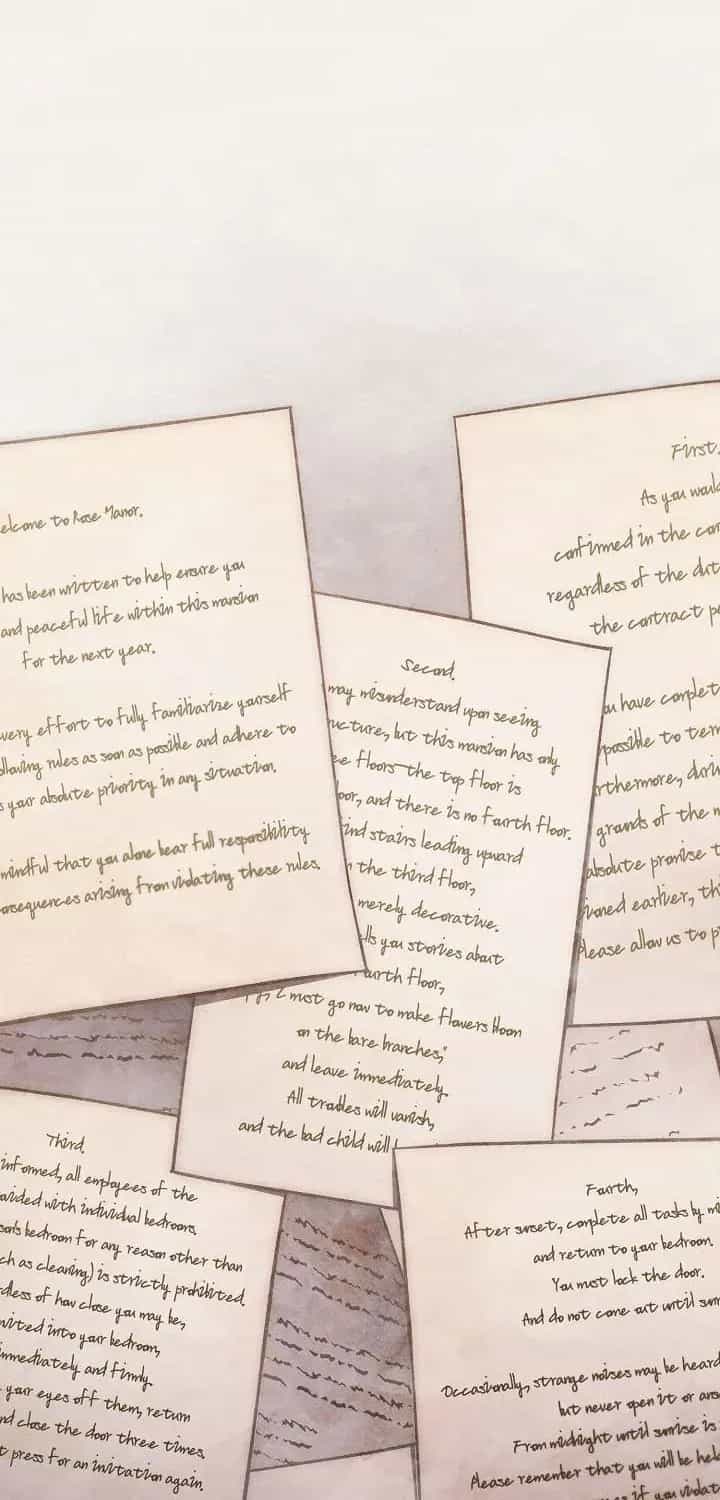 elcome to Rose Manor.
has been written to help ensure you
and peaceful life within this mansion
for the next year.
very effort to fully familiarize yourself
llowing rules as soon as possible and adhere to
s your absolute priority in any situation.
mindful that you alone bear full responsibility
onsequences arising from violating these rules.
First.
As you would
confirmed in the con
regardless of the dut
the contract p
ou have complet
possible to term
rthermore, duri
grounds of the m
absolute promise t
ioned earlier, thi
Please allow us to p
Second.
may misunderstand upon seeing
ructure, but this mansion has only
ee floors—the top floor is
oor, and there is no fourth floor.
find stairs leading upward
the third floor,
merely decorative.
lls you stories about
ourth floor,
I must go now to make flowers bloom
on the bare branches,"
and leave immediately.
All troubles will vanish,
and the bad child will
Third.
informed, all employees of the
ovided with individual bedrooms.
son's bedroom for any reason other than
ch as cleaning) is strictly prohibited.
dless of how close you may be,
nvited into your bedroom,
immediately and firmly.
your eyes off them, return
nd close the door three times.
t press for an invitation again.
Fourth,
After sunset, complete all tasks by mi
and return to your bedroom.
You must lock the door.
And do not come out until sunr
Occasionally, strange noises may be heard
but never open it or ans
From midnight until sunrise is
Please remember that you will be held
if you violat